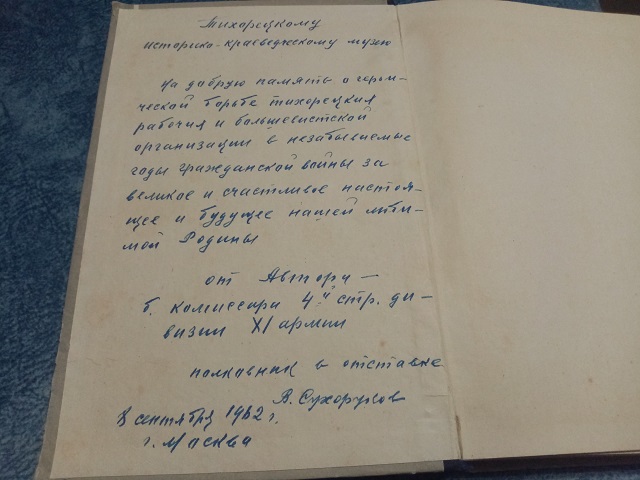 Тихорецкому
историко-краеведческому музею
На добрую память о герои-
ческой борьбе тихорецких
рабочих и большевистской
организации в незабываемые
годы гражданской войны за
великое и счастливое настоя-
щее и будущее нашей люби-
мой Родины
от Автора —
б. комиссара 4-й стр. ди-
визии XI армии
полковник в отставке
В. Сухоруков
8 сентября 1962 г.
г. Москва